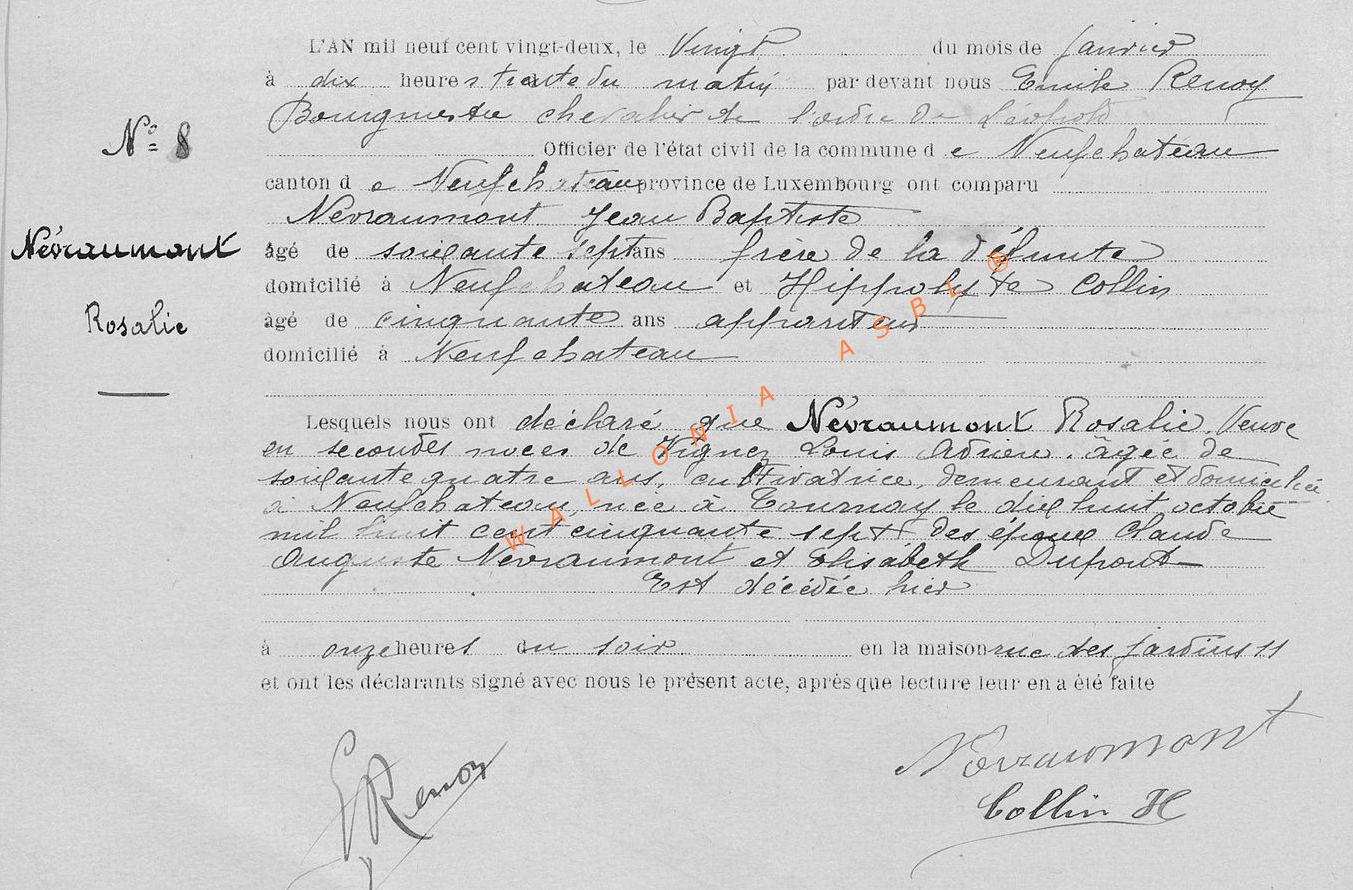 L'AN mil neuf cent vingt-deux, le Vingt du mois de Janvier
à dix heures trente du matin par devant nous Emile Renoy
Bourgmestre chevalier de l'ordre de Léopold
Officier de l'état civil de la commune de Neufchateau
canton de Neufchateau province de Luxembourg ont comparu
Névraumont Jean Baptiste
âgé de soixante sept ans frère de la défunte
domicilié à Neufchateau et Hippolyte Collin
âgé de cinquante ans appariteur
domicilié à Neufchateau
N° 8
Névraumont
Rosalie
Lesquels nous ont déclaré que Névraumont Rosalie, Veuve
en secondes noces de Louis Adrien, âgée de
soixante quatre ans, cultivatrice, demeurant et domiciliée
à Neufchateau, née à Tournay le dix huit octobre
mil huit cent cinquante sept des époux Claude
Auguste Névraumont et Elisabeth Dupont
Est décédée hier
à onze heures du soir en la maison rue des Jardins 11
et ont les déclarants signé avec nous le présent acte, après que lecture leur en a été faite
E Renoy
Névraumont
Collin H
WALLONIA ASBL ®